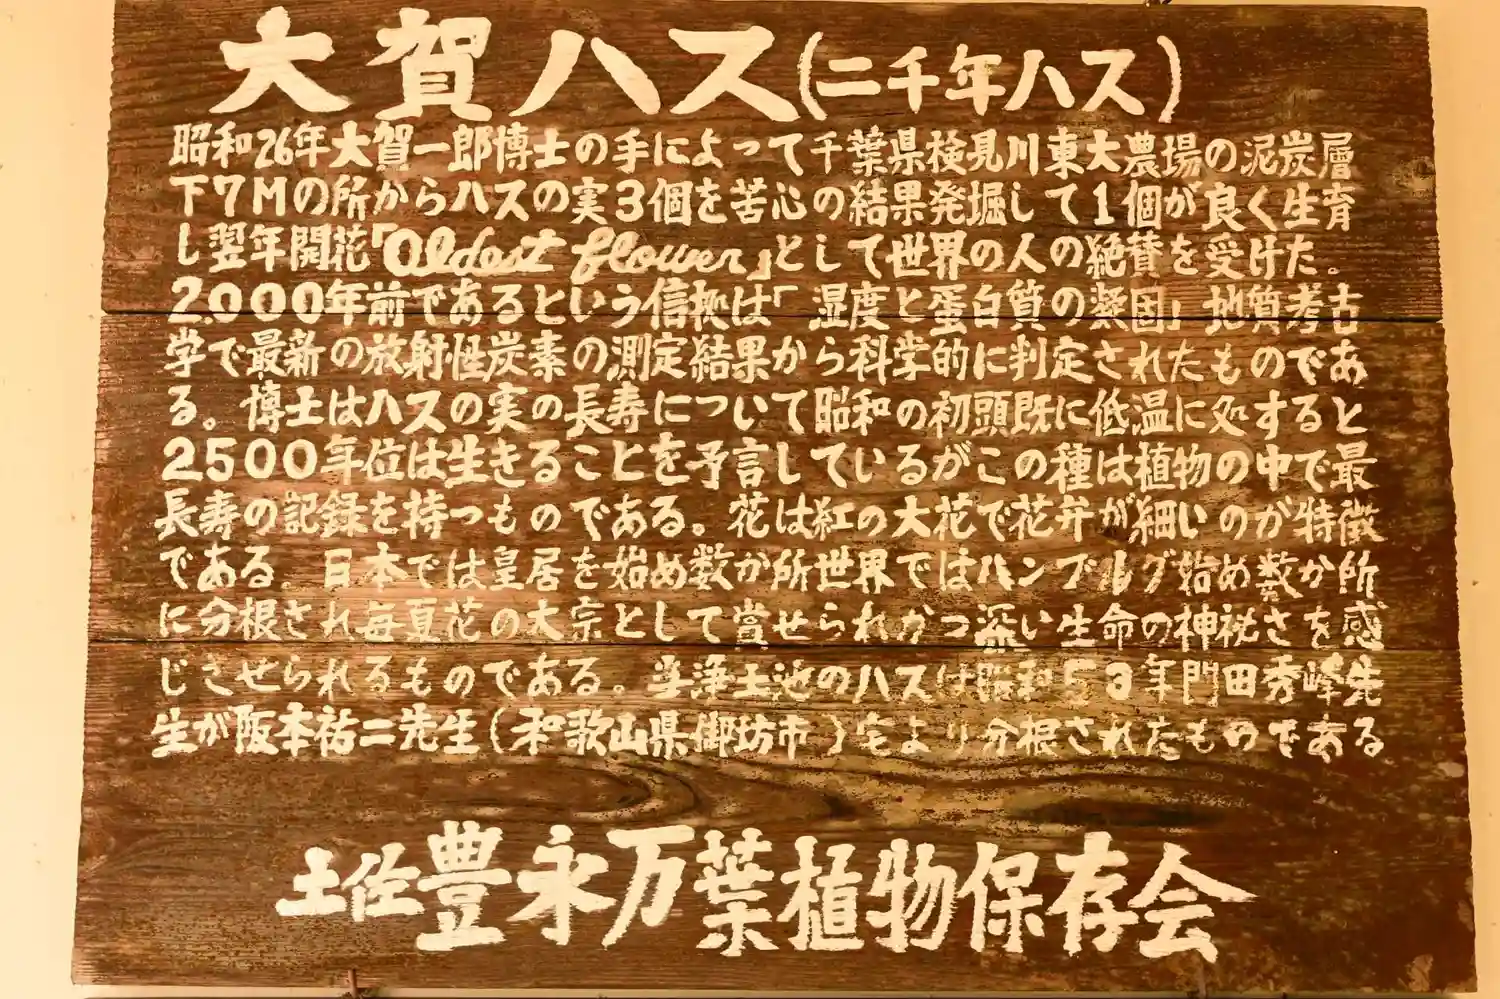 大賀ハス(二千年ハス)
昭和26年大賀一郎博士の手によって千葉県検見川東大農場の泥炭層
下7Mの所からハスの実3個を苦心の結果発掘して1個が良く生育
し翌年開花「Oldest flower」として世界の人の絶賛を受けた。
2.000年前であるという信拠は「湿度と蛋白質の凝固」地質考古
学で最新の放射性炭素の測定結果から科学的に判定されたものであ
る。博士はハスの実の長寿について昭和の初頭既に低温に処すると
2500年位は生きることを予言しているがこの種は植物の中で最
長寿の記録を持つものである。花は紅の大花で花弁が細いのが特徴
である。日本では皇居を始め数か所世界ではハンブルグ始め数か所
に分根され毎夏花の大宗として賞せられかつ深い生命の神秘さを感
じさせられるものである。当浄土池のハスは昭和53年門田秀峰先
生が阪本祐二先生(和歌山県御坊市)宅より分根されたものである
土佐豊永万葉植物保存会